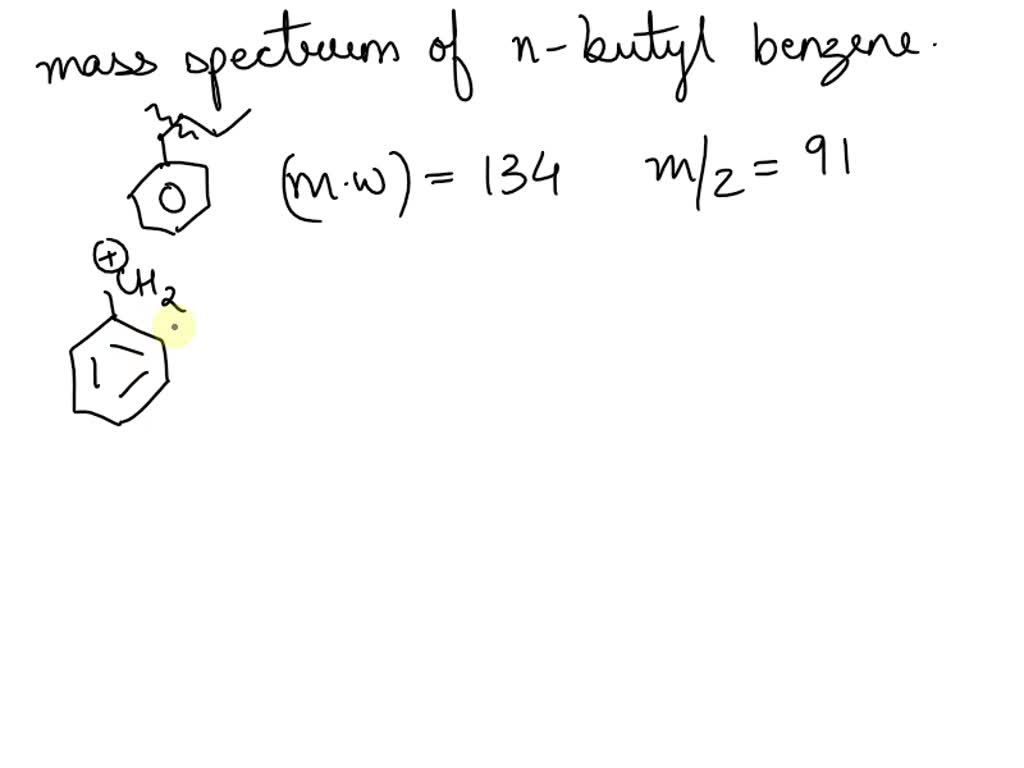 mass spectrum of n-butyl benzene.
(m.w) = 134 m/z = 91
+
CH2